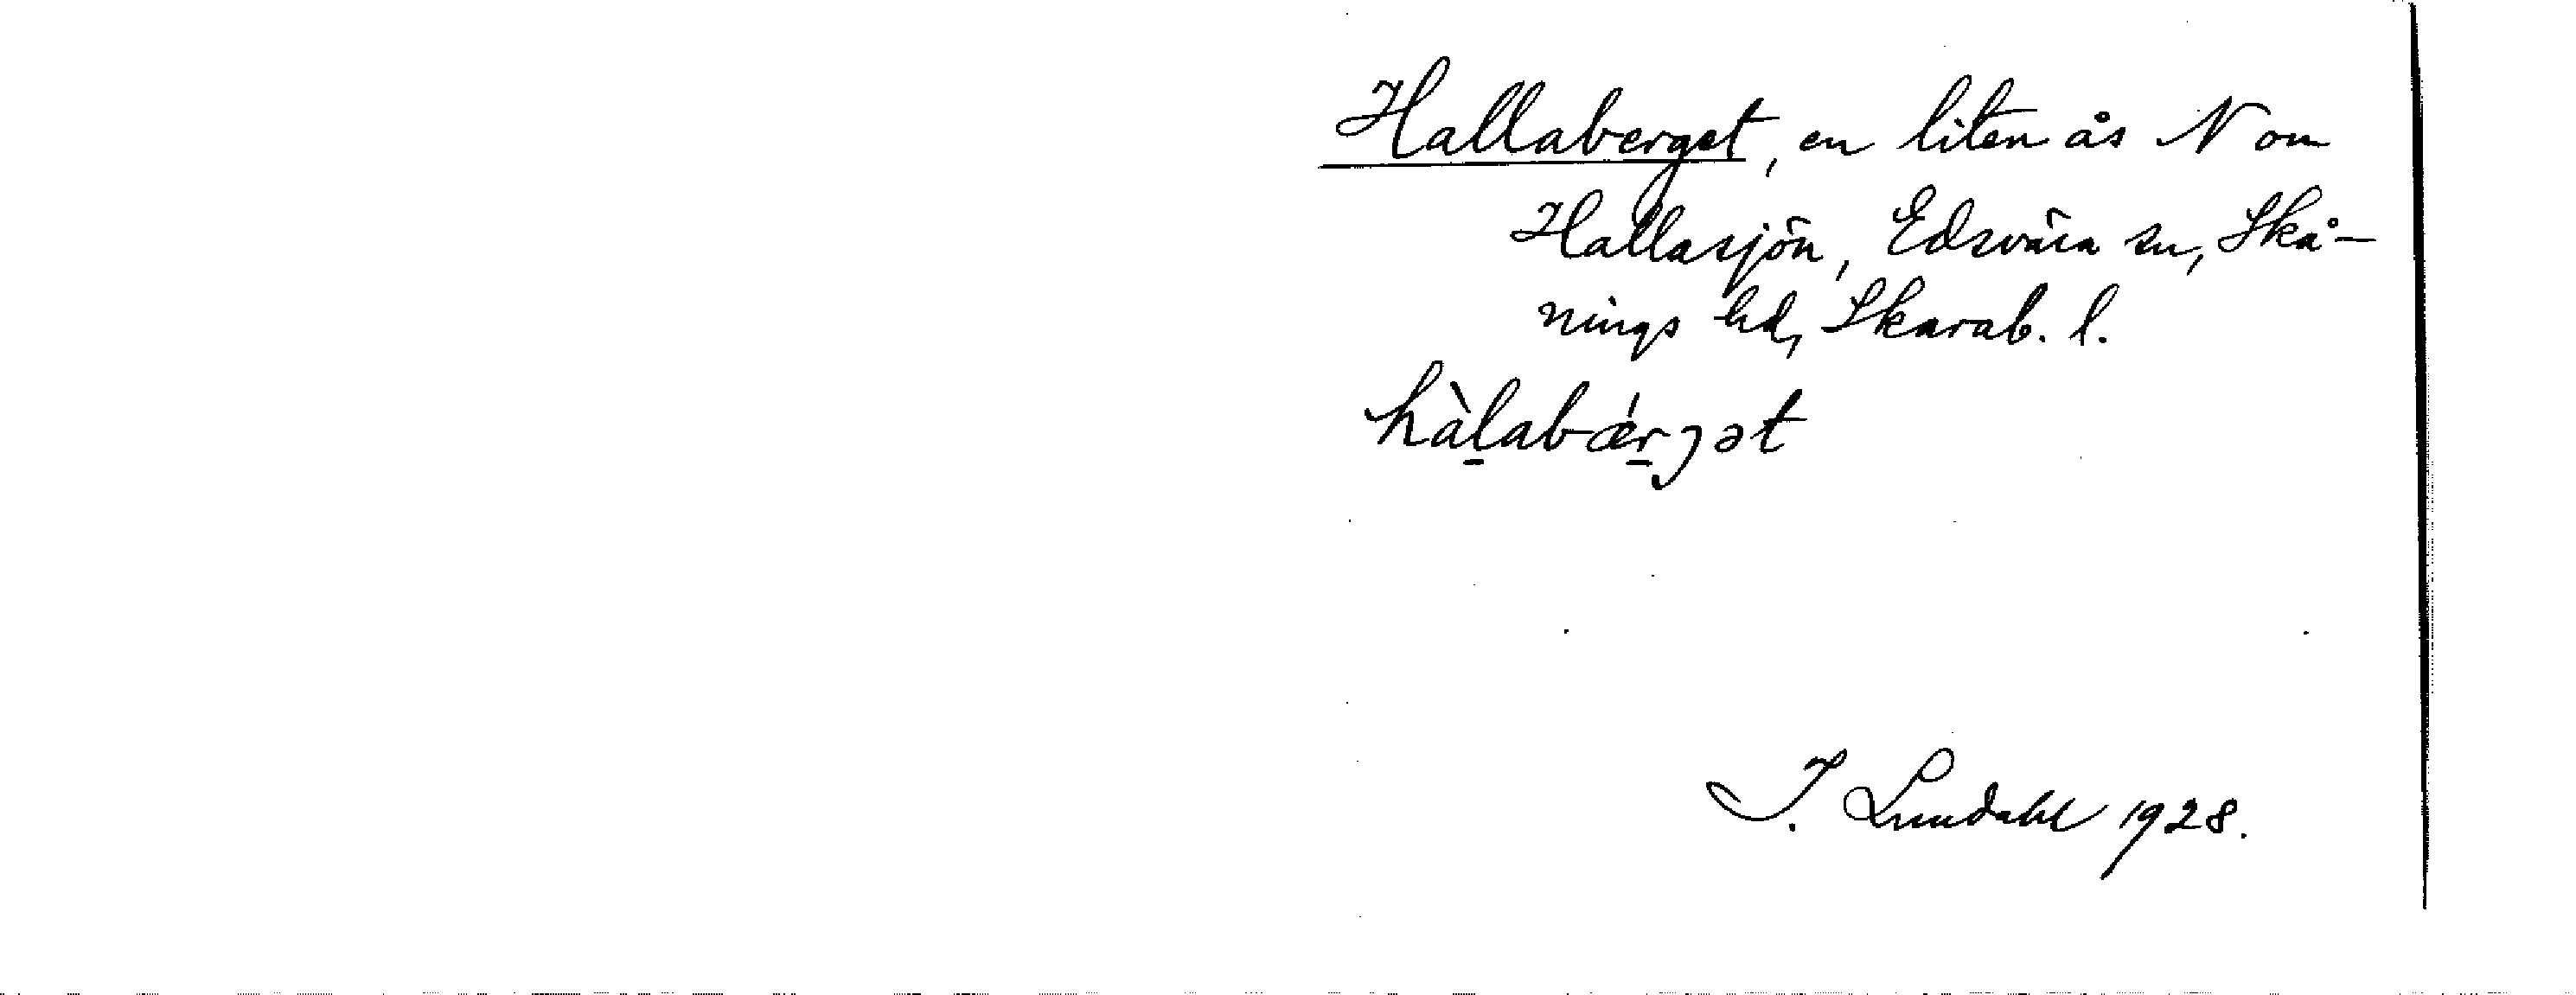 Hallaberget, en liten ås N om
Hallasjön, Edsvära sn, Skå-
nings hd, Skarab. l.
hàl̲abǽr̲ȷət
I. Lundahl 1928.